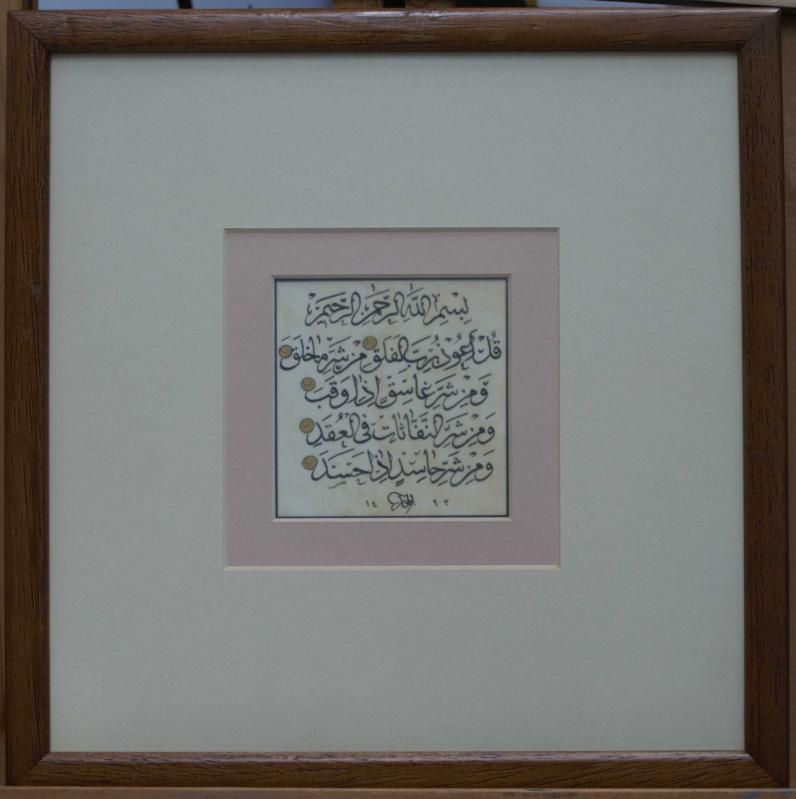 بِسْمِ اللَّهِ الرَّحْمَنِ الرَّحِيمِ
قُلْ أَعُوذُ بِرَبِّ الْفَلَقِ مِنْ شَرِّ مَا خَلَقَ
وَمِنْ شَرِّ غَاسِقٍ إِذَا وَقَبَ
وَمِنْ شَرِّ النَّفَّاثَاتِ فِي الْعُقَدِ
وَمِنْ شَرِّ حَاسِدٍ إِذَا حَسَدَ
١٤